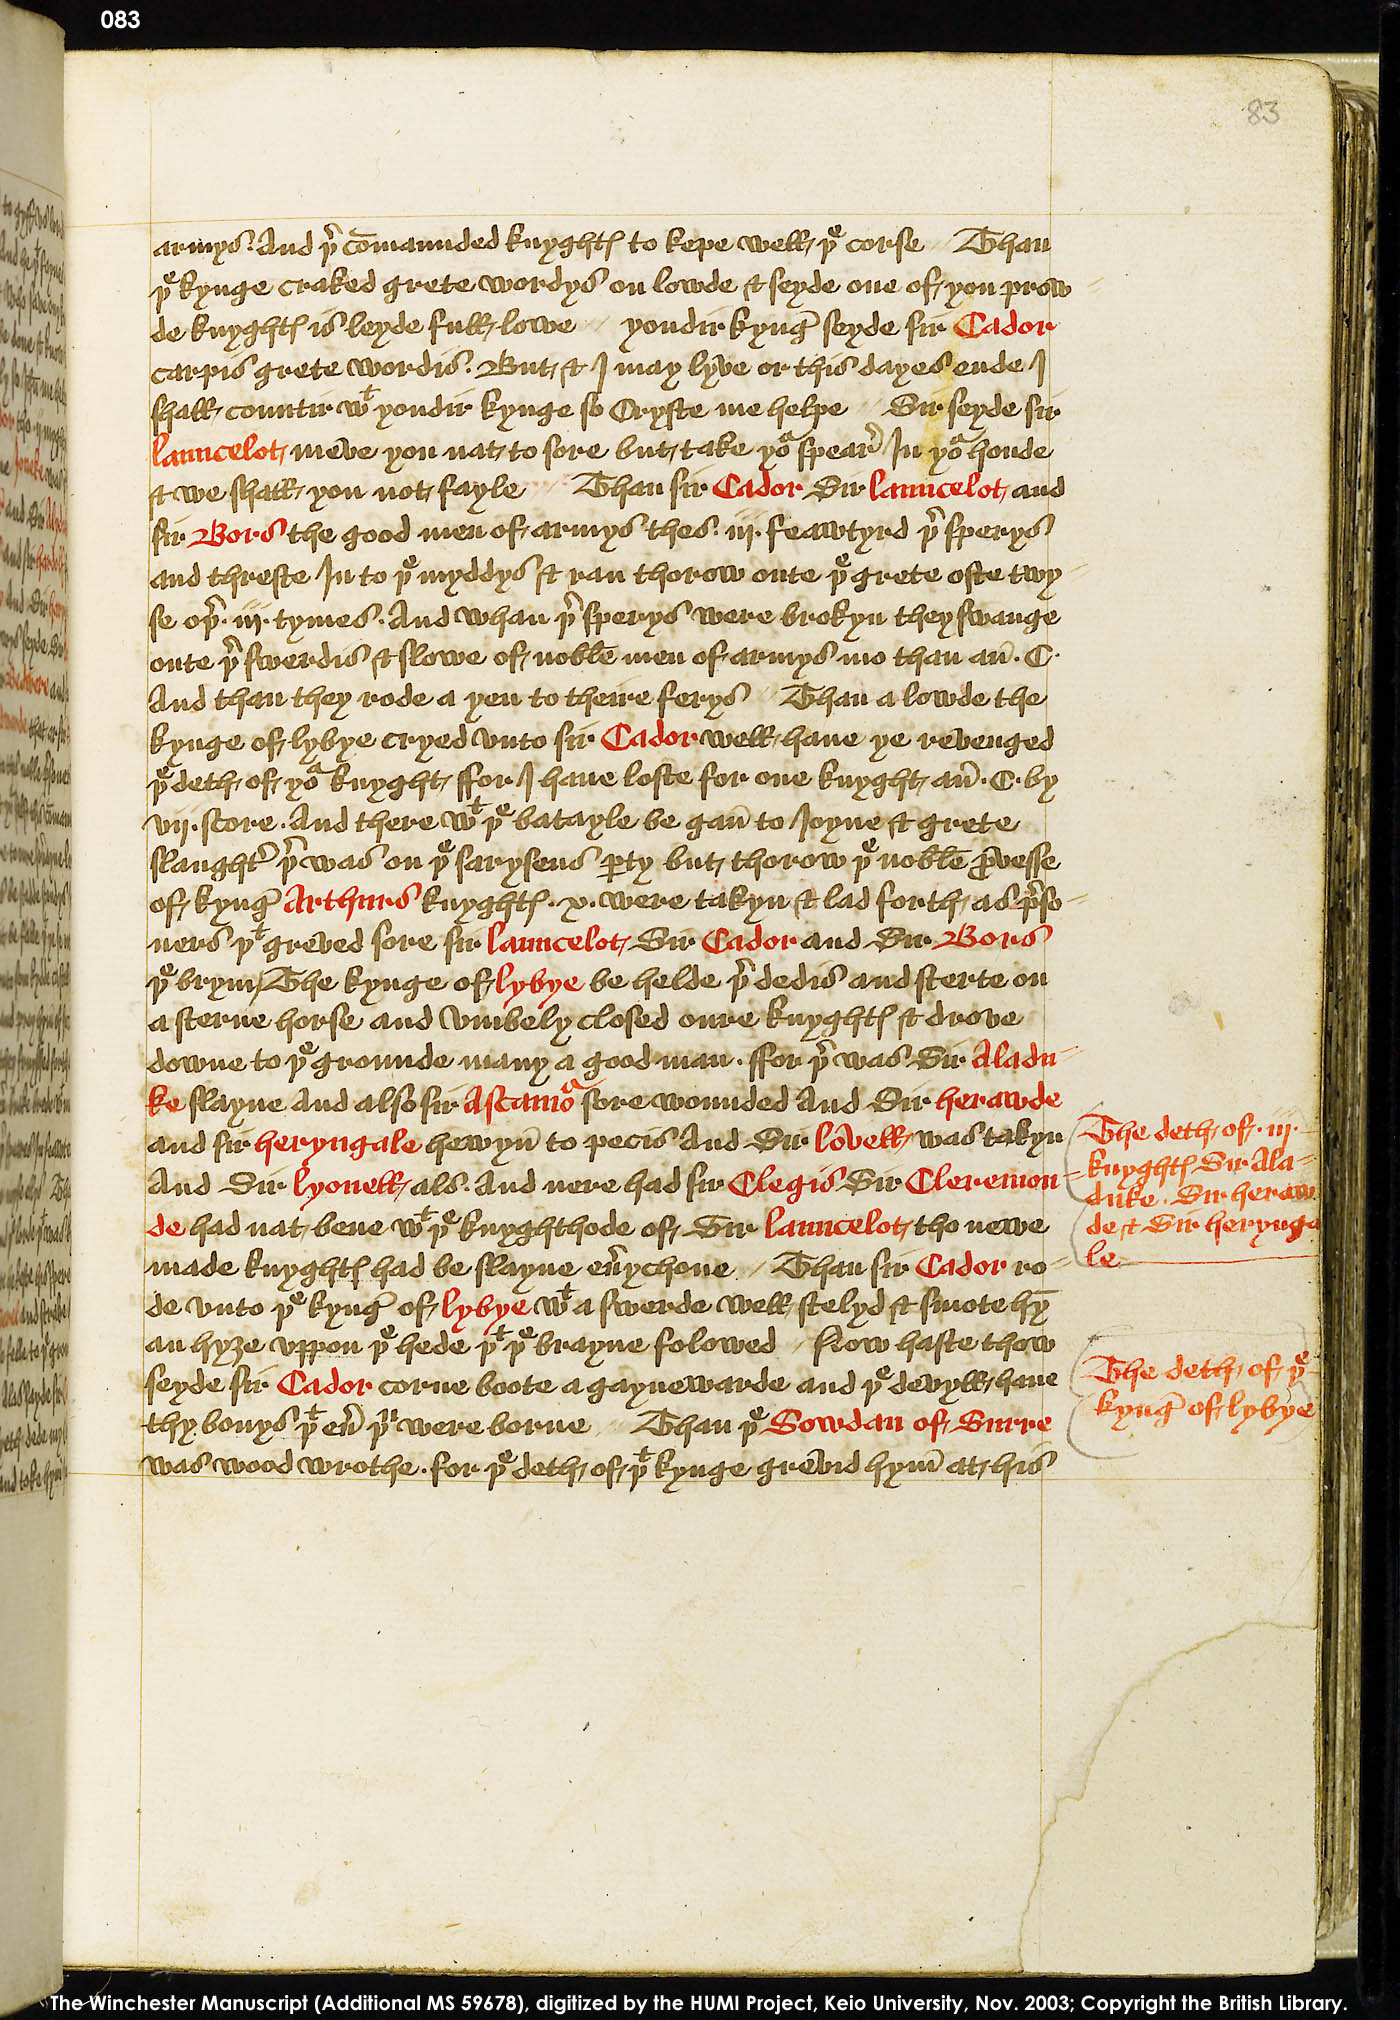 083
83
armys. And þr comaunded knyghtes to kepe well þe corse // Than
þe kynge craked grete wordys on lowde & seyde one of you prow
de knyghtes is leyde full lowe // yondir kynge seyde sir Cador
carpis grete wordis. But & I may lyve or this dayes ende I
shall countir wt yondir kynge so Cryste me helpe // Sir seyde sir
launcelot meve you nat to sore but take yor spear In yor honde
& we shall you not fayle // Than sir Cador Sir launcelot and
sir Bors the good men of armys thes .iij. feawtyrd þr sperys
and threste In to þe myddys & ran thorow oute þe grete oste twy=
se oþr .iij. tymes. And whan þr sperys were brokyn they swange
oute þr swerdis & slowe of noble men of armys mo than an .C.
And than they rode a yen to theire ferys // Than a lowde the
kynge of lybye cryed vnto sir Cador well haue ye revenged
þe deth of yor knyght ffor I haue loste for one knyght an .C. by
vij. score. And there wt þe batayle be gan to Joyne & grete
slaughtr þr was on þe sarysens party but thorow þe noble provesse
of kynge Arthurs knyghtes .x. were takyn & lad forth as preso=
ners þt greved sore sir launcelot Sir Cador and Sir Bors
þe brym / The kynge of lybye be helde þr dedis and sterte on
a sterne horse and vmbely closed oure knyghtes & drove
downe to þe grounde many a good man. ffor þr was Sir Aladu=
ke slayne And also sir Ascamor sore wounded And Sir herawde
and sir heryngale hewyn to pecis And Sir lovell was takyn
And Sir lyonell als. And nere had sir Clegis Sir Cleremon=
de had nat bene wt þe knyghthode of Sir launcelot tho newe
made knyghtes had be slayne everychone // Than sir Cador ro=
de vnto þe kynge of lybye wt a swerde well stelyd & smote hym
an hyze vppon þe hede þt þe brayne folowed // Now haste thow
seyde sir Cador corne boote a gaynewarde and þe devyll haue
thy bonys þt ever þu were borne // Than þe Sowdan of Surre
was wood wrothe. for þe deth of þt kynge grevid hym at his
The deth of .iij.
knyghtes Sir Ala=
duke. Sir heraw
de & Sir herynga
le
The deth of þe
kynge of lybye
The Winchester Manuscript (Additional MS 59678), digitized by the HUMI Project, Keio University, Nov. 2003; Copyright the British Library.